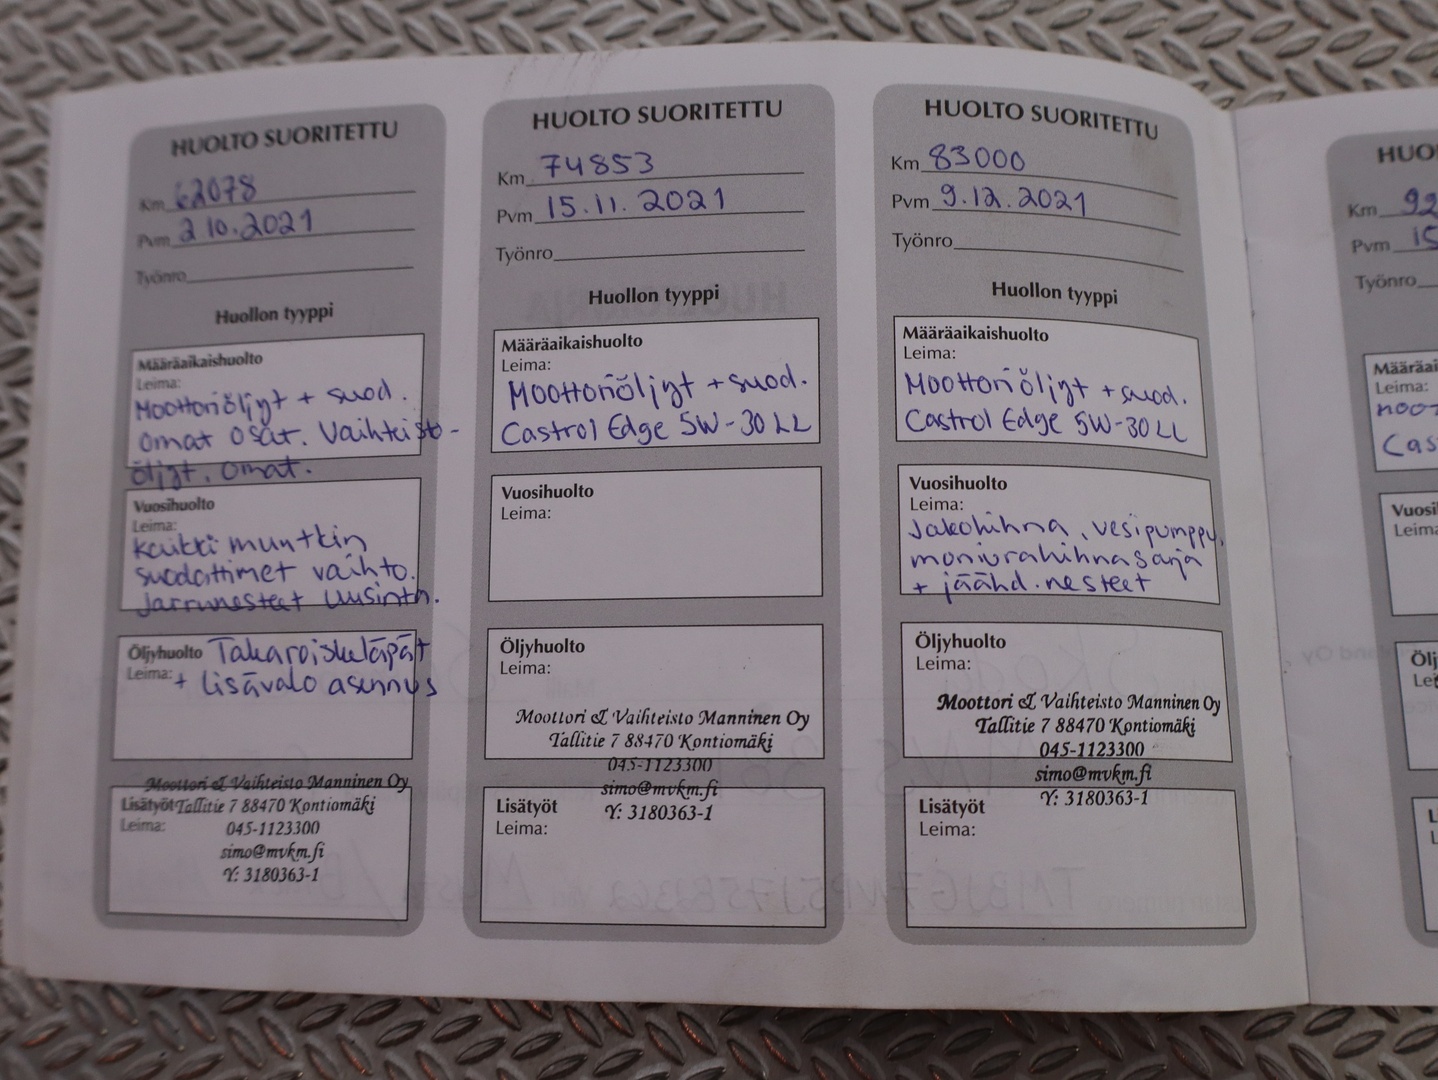 HUOLTO SUORITETTU
Km 62078
Pvm 2 10.2021
Työnro
Huollon tyyppi
Määräaikaishuolto
Leima:
Moottoriöljyt + suod.
omat osat. Vaihteisto-
öljyt. omat.
Vuosihuolto
Leima:
kaikki muutkin
suodattimet vaihto.
Jarrunesteet uusinta.
Öljyhuolto Takaroiskeläpät
Leima: + lisävalo asennus
Moottori & Vaihteisto Manninen Oy
Lisätyöt Tallitie 7 88470 Kontiomäki
Leima: 045-1123300
simo@mvkm.fi
Y: 3180363-1
HUOLTO SUORITETTU
Km 74853
Pvm 15.11.2021
Työnro
Huollon tyyppi
Määräaikaishuolto
Leima:
Moottoriöljyt + suod.
Castrol Edge 5W-30 LL
Vuosihuolto
Leima:
Öljyhuolto
Leima:
Moottori & Vaihteisto Manninen Oy
Tallitie 7 88470 Kontiomäki
045-1123300
simo@mvkm.fi
Lisätyöt Y: 3180363-1
Leima:
HUOLTO SUORITETTU
Km 83000
Pvm 9.12.2021
Työnro
Huollon tyyppi
Määräaikaishuolto
Leima:
Moottoriöljyt + suod.
Castrol Edge 5W-30 LL
Vuosihuolto
Leima:
Jakohihna, vesipumppu,
moniurahihnasarja
+ jäähd. nesteet
Öljyhuolto
Leima:
Moottori & Vaihteisto Manninen Oy
Tallitie 7 88470 Kontiomäki
045-1123300
simo@mvkm.fi
Lisätyöt Y: 3180363-1
Leima:
HUO
Km 92
Pvm 15
Työnro
Määräai
Leima:
moot
Cas
Vuosi
Leima
Öljy
Le
L
L